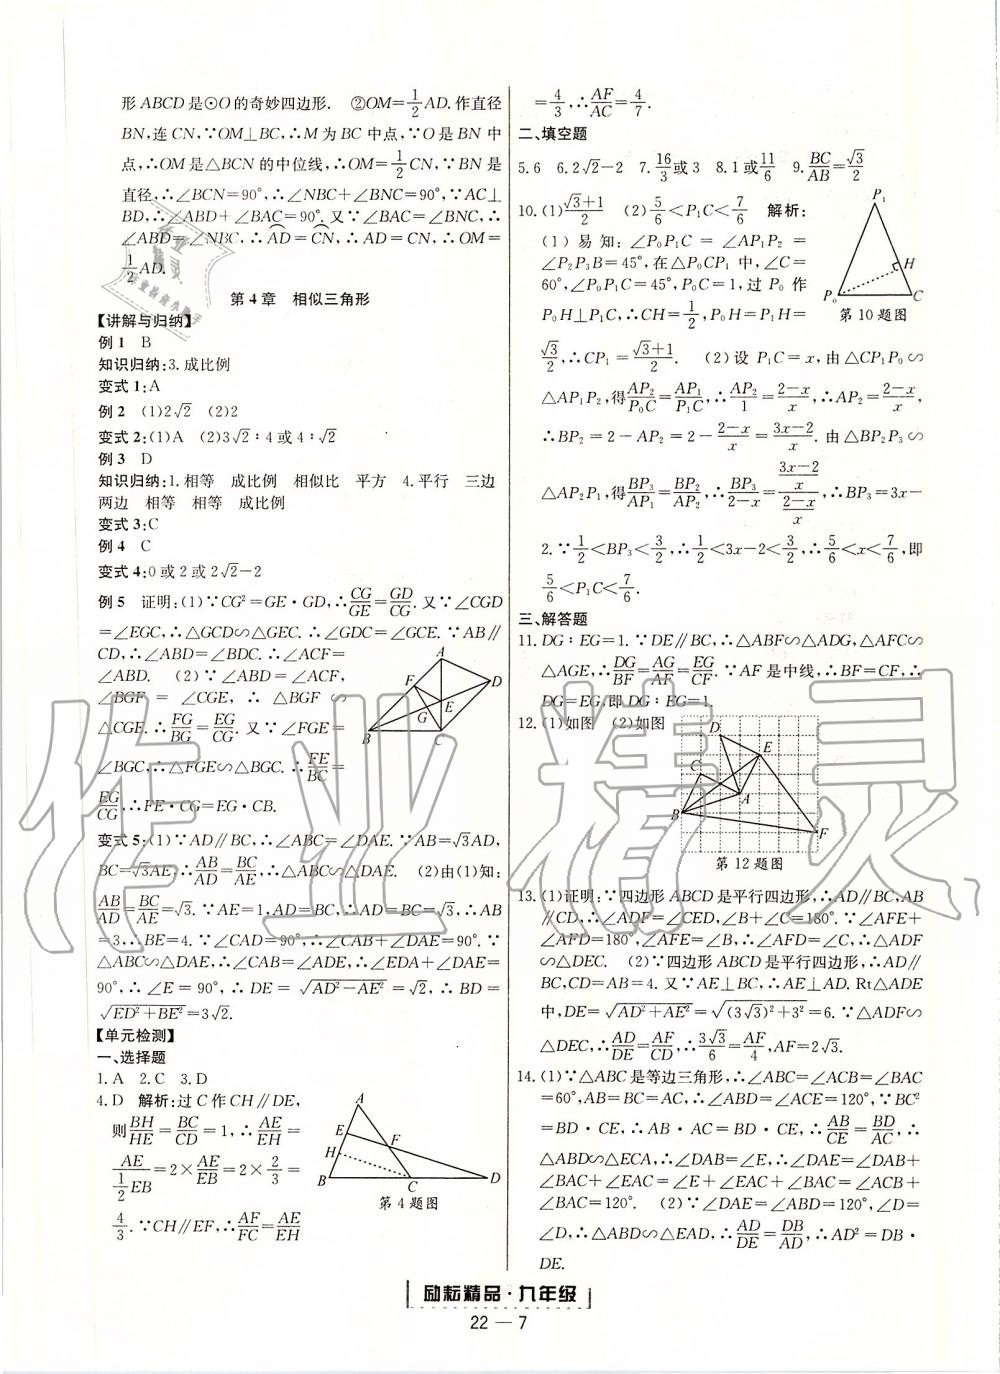 形 ABCD 是⊙O 的奇妙四边形. ②OM=1/2 AD. 作直径
BN,连 CN,∵OM⊥BC,∴M 为 BC 中点,∵O 是 BN 中
点,∴OM 是△BCN 的中位线,∴OM=1/2 CN,∵BN 是
直径,∴∠BCN=90°,∴∠NBC+∠BNC=90°,∵AC⊥
BD,∴∠ABD+∠BAC=90°. 又∵∠BAC=∠BNC,∴
∠ABD=∠NBC,∴⌒AD=⌒CN,∴AD=CN,∴OM=
1/2 AD.
第 4 章 相似三角形
【讲解与归纳】
例 1 B
知识归纳:3. 成比例
变式 1:A
例 2 (1)2√2 (2)2
变式 2:(1)A (2)3√2∶4 或 4∶√2
例 3 D
知识归纳:1. 相等 成比例 相似比 平方 4. 平行 三边
两边 相等 相等 成比例
变式 3:C
例 4 C
变式 4:0 或 2 或 2√2-2
例 5 证明:(1)∵CG²=GE·GD,∴CG/GE=GD/CG. 又∵∠CGD
=∠EGC,∴△GCD∽△GEC. ∴∠GDC=∠GCE. ∵AB∥
CD,∴∠ABD=∠BDC. ∴∠ACF=
∠ABD. (2)∵∠ABD=∠ACF,
∠BGF = ∠CGE, ∴ △BGF ∽
△CGE. ∴FG/BG=EG/CG. 又∵∠FGE=
∠BGC,∴△FGE∽△BGC. ∴FE/BC=
EG/CG,∴FE·CG=EG·CB.
A
F
D
E
G
B
C
变式 5:(1)∵AD∥BC,∴∠ABC=∠DAE. ∵AB=√3AD,
BC=√3AE,∴AB/AD=BC/AE,∴△ABC∽△DAE. (2)由(1)知:
AB/AD=BC/AE=√3. ∵AE=1,AD=BC,∴AD=BC=√3,∴AB
=3,∴BE=4. ∵∠CAD=90°,∴∠CAB+∠DAE=90°. ∵
△ABC∽△DAE,∴∠CAB=∠ADE,∴∠EDA+∠DAE=
90°, ∴ ∠E = 90°, ∴ DE = √(AD²-AE²) = √2, ∴ BD =
√(ED²+BE²)=3√2.
【单元检测】
一、选择题
1. A 2. C 3. D
4. D 解析:过 C 作 CH∥DE,
则BH/HE=BC/CD=1,∴AE/EH=
AE/(1/2 EB)=2×AE/EB=2×2/3=
4/3. ∵CH∥EF,∴AF/FC=AE/EH
A
E
F
H
B
C
D
第 4 题图
=4/3,∴AF/AC=4/7.
二、填空题
5. 6 6. 2√2-2 7. 16/3或 3 8. 1 或11/6 9. BC/AB=√3/2
10. (1)(√3+1)/2 (2)5/6<P₁C<7/6 解析:
(1) 易知:∠P₀P₁C = ∠AP₁P₂ =
∠P₂P₃B=45°,在△P₀CP₁ 中,∠C=
60°,∠P₀P₁C=45°,P₀C=1,过 P₀ 作
P₀H⊥P₁C,∴CH=1/2,P₀H=P₁H=
√3/2,∴CP₁=(√3+1)/2. (2) 设 P₁C=x,由△CP₁P₀∽
P₁
H
P₀
C
第 10 题图
△AP₁P₂,得AP₂/P₀C=AP₁/P₁C,∴AP₂/1=(2-x)/x,∴AP₂=(2-x)/x,
∴BP₂=2-AP₂=2-(2-x)/x=(3x-2)/x. 由△BP₂P₃∽
△AP₂P₁,得BP₃/AP₁=BP₂/AP₂,∴BP₃/(2-x)=((3x-2)/x)/((2-x)/x),∴BP₃=3x-
2. ∵1/2<BP₃<3/2,∴1/2<3x-2<3/2,∴5/6<x<7/6,即
5/6<P₁C<7/6.
三、解答题
11. DG∶EG=1. ∵DE∥BC,∴△ABF∽△ADG,△AFC∽
△AGE,∴DG/BF=AG/AF=EG/CF. ∵AF 是中线,∴BF=CF,∴
DG=EG,即 DG∶EG=1.
12. (1)如图 (2)如图
D
E
C
A
B
F
第 12 题图
13. (1)证明:∵四边形 ABCD 是平行四边形,∴AD∥BC,AB
∥CD,∴∠ADF=∠CED,∠B+∠C=180°. ∵∠AFE+
∠AFD=180°,∠AFE=∠B,∴∠AFD=∠C,∴△ADF
∽△DEC. (2)∵四边形 ABCD 是平行四边形,∴AD∥
BC,CD=AB=4. 又∵AE⊥BC,∴AE⊥AD. Rt△ADE
中,DE=√(AD²+AE²)=√((3√3)²+3²)=6. ∵△ADF∽
△DEC,∴AD/DE=AF/CD,∴3√3/6=AF/4,AF=2√3.
14. (1)∵△ABC 是等边三角形,∴∠ABC=∠ACB=∠BAC
=60°,AB=BC=AC,∴∠ABD=∠ACE=120°,∵BC²
=BD·CE,∴AB·AC=BD·CE,即AB/CE=BD/AC,∴
△ABD∽△ECA,∴∠DAB=∠E,∴∠DAE=∠DAB+
∠BAC+∠EAC=∠E+∠EAC+∠BAC=∠ACB+
∠BAC=120°. (2)∵∠DAE=∠ABD=120°,∠D=
∠D,∴△ABD∽△EAD,∴AD/DE=DB/AD,∴AD²=BD·
DE.
励耘精品·九年级
22 — 7
作业精灵